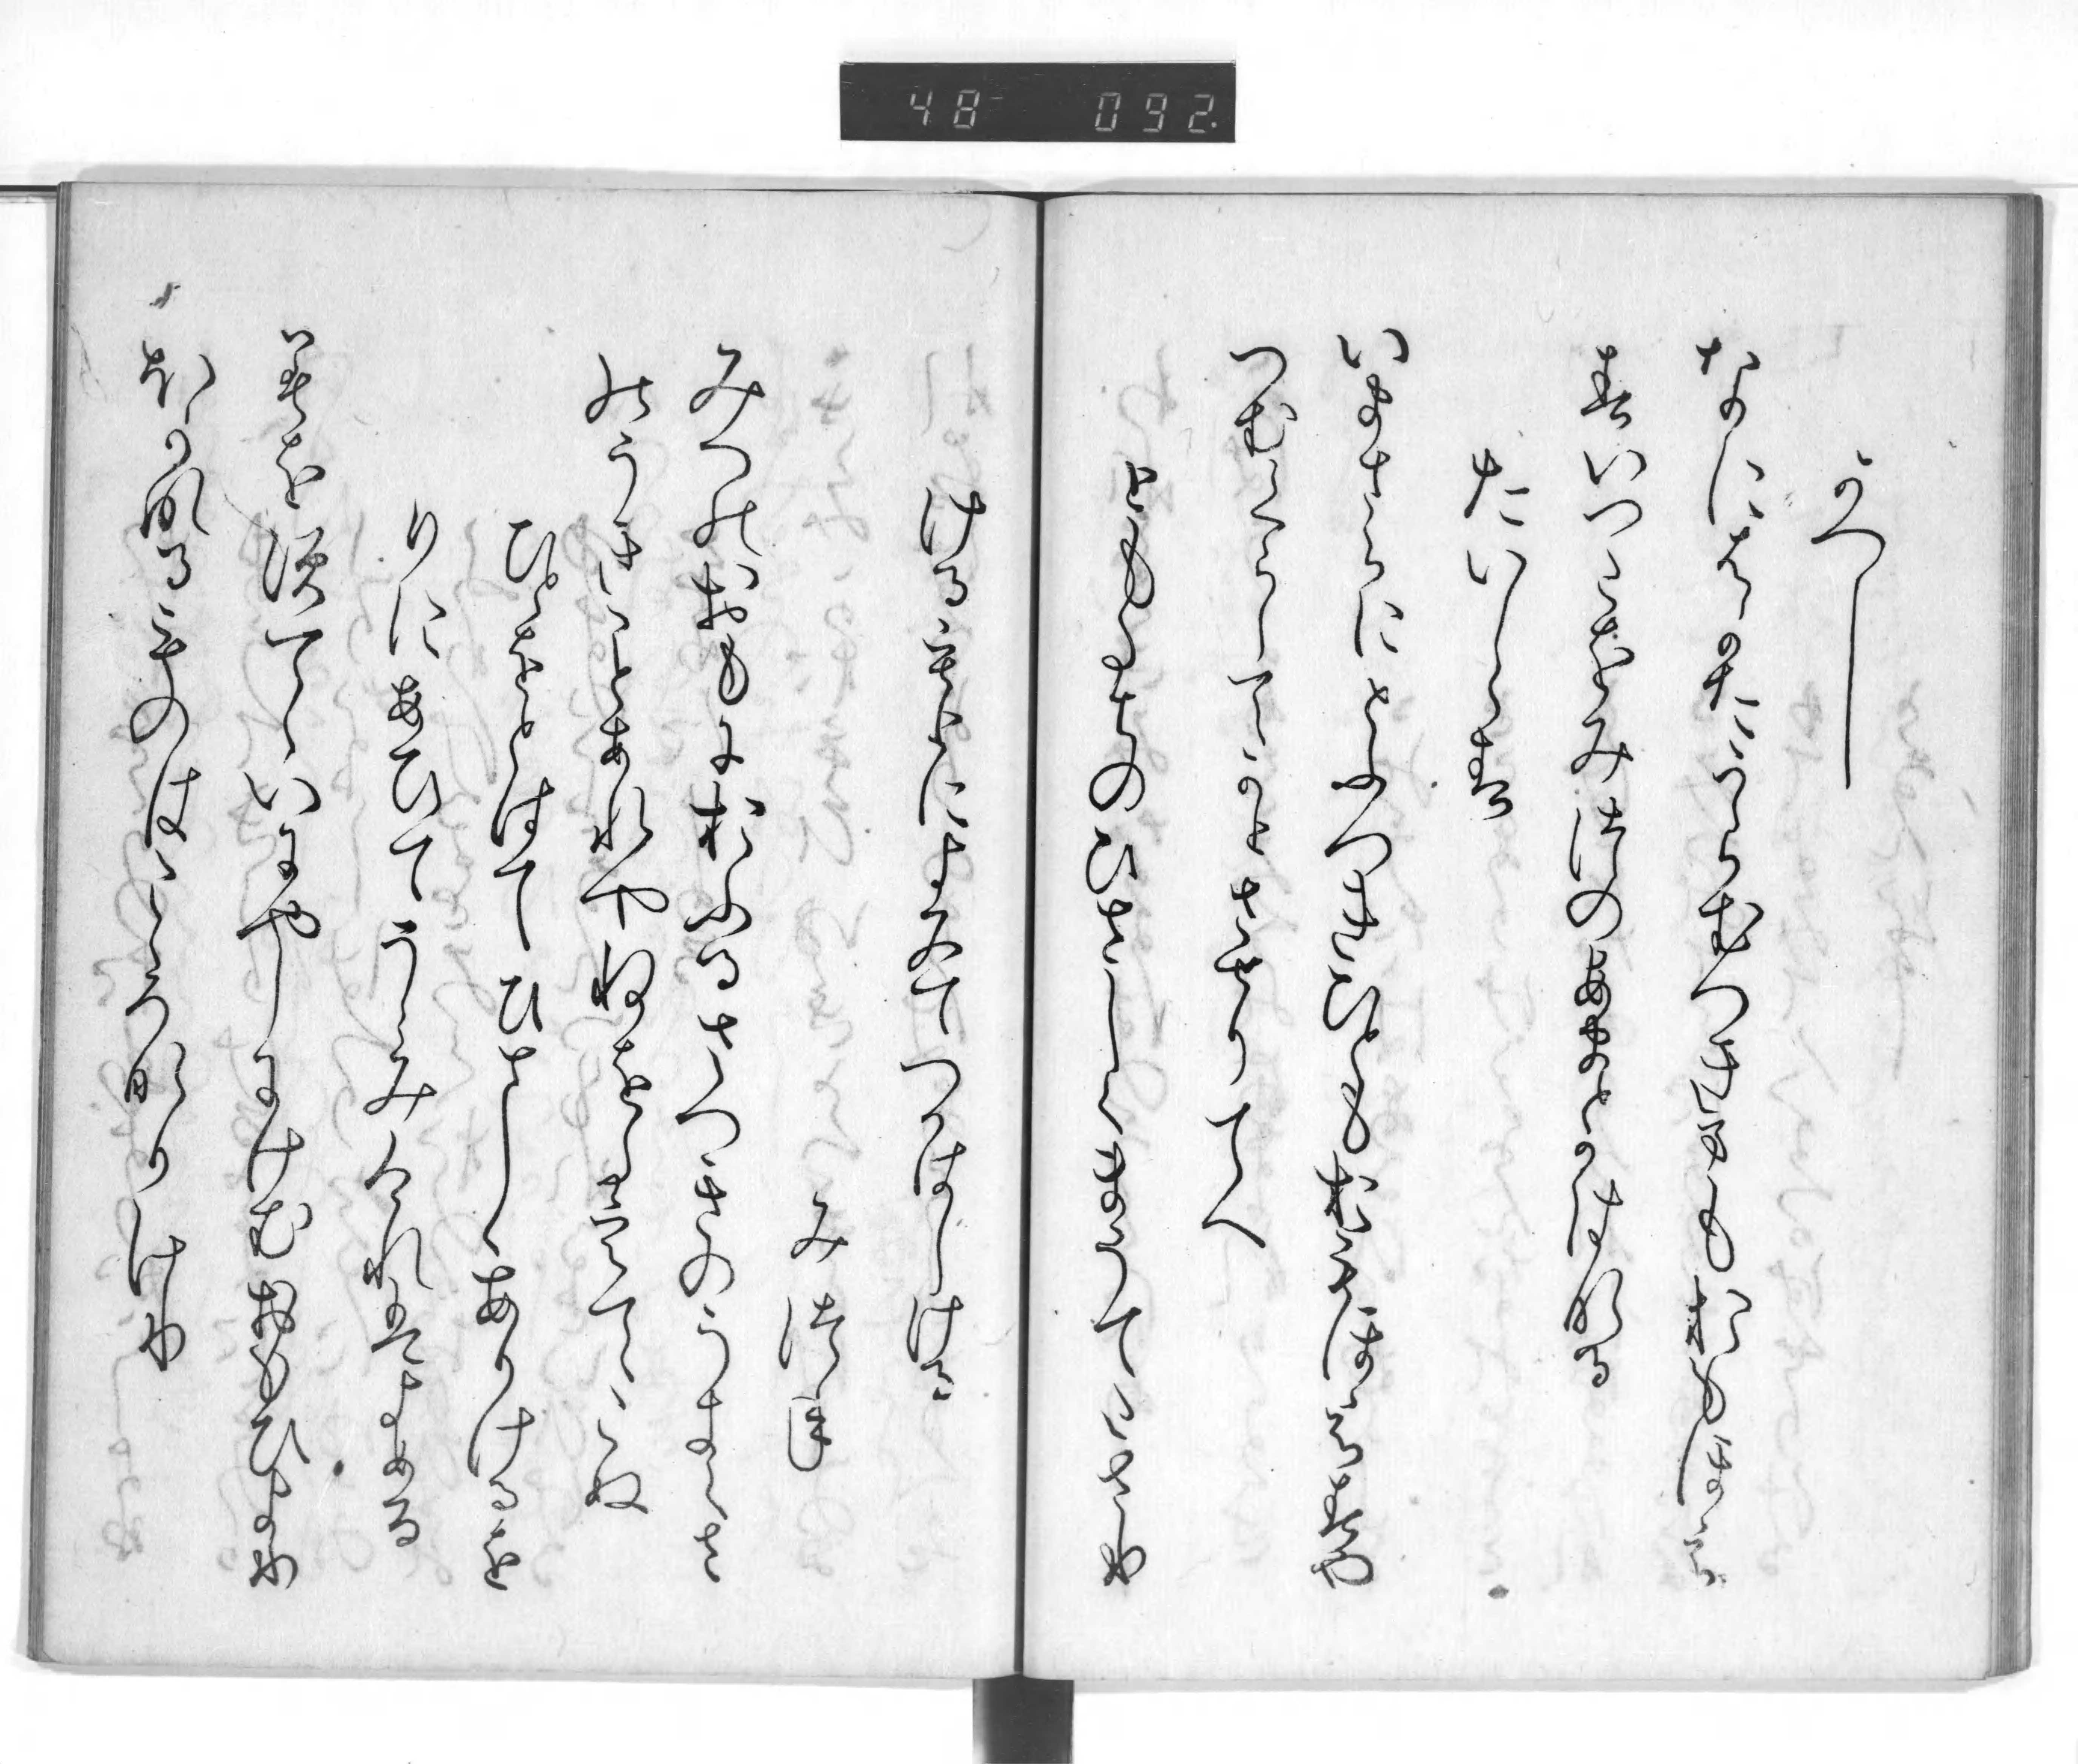 かへし
なにはかたうらむへきまもおもほえ
すいつこをみつのあまとかはなる
たいしらす
いまさらにとふへきひともおもほえすや
へむくらしてかとさせりてへ
ともたちのひさしうまうてこさり
けるもとによみてつかはしける
みつね
みつのおもにおふるさつきのうきくさ
のうきことあれやねをたえてこぬ
ひとをとはてひさしうありけるを
りにあひてうらみけれはよめる
みをすてゝいにやしにけむおもひより
ほかなるものはこゝろなりけり